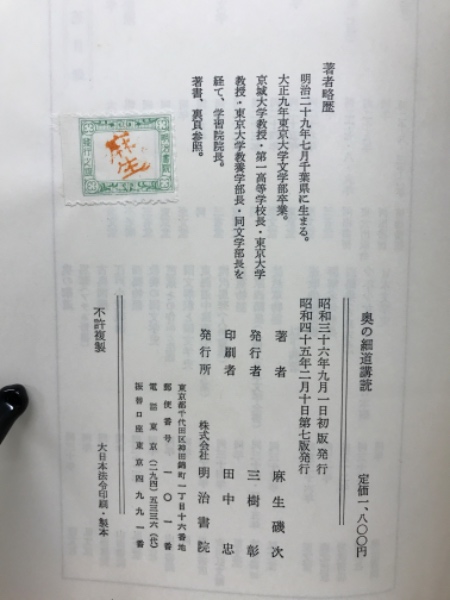 著者略歴
明治二十九年七月千葉県に生まる。
大正九年東京大学文学部卒業。
京城大学教授・第一高等学校長・東京大学
教授・東京大学教養学部長・同文学部長を
経て、学習院院長。
著書、裏頁参照。
麻生
奥の細道講読
定価一、八〇〇円
昭和三十六年九月一日初版発行
昭和四十五年二月十日第七版発行
著者 麻生磯次
発行者 三樹彰
印刷者 田中忠
発行所 株式会社 明治書院
東京都千代田区神田錦町一丁目十六番地
郵便番号 一〇一番
電話東京(二九四)五三三六(代)
振替口座東京四九九一番
不許複製
大日本法令印刷・製本